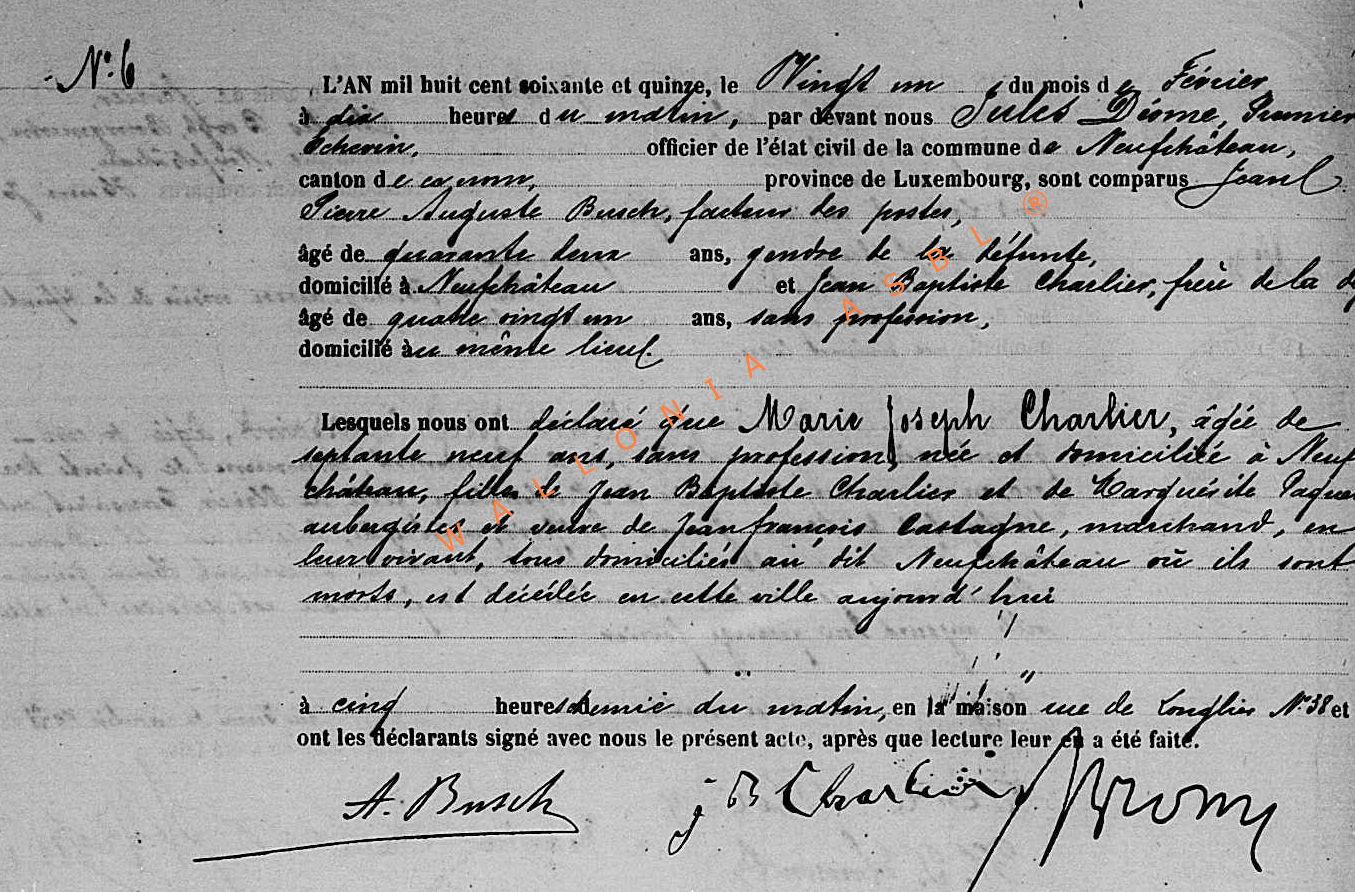 N° 6
L'AN mil huit cent soixante et quinze, le Vingt un du mois de Février
à dix heures du matin, par devant nous Jules Diome, Premier
Echevin, officier de l'état civil de la commune de Neufchâteau,
canton de ce nom, province de Luxembourg, sont comparus Jean
Pierre Auguste Busch, facteur des postes,
âgé de quarante deux ans, gendre de la défunte,
domicilié à Neufchâteau et Jean Baptiste Charlier, frère de la
âgé de quatre vingt un ans, sans profession,
domicilié au même lieu.
Lesquels nous ont déclaré que Marie Joseph Charlier, âgée de
septante neuf ans, sans profession, née et domiciliée à Neuf
château, fille de Jean Baptiste Charlier et de Marguérite
aubergistes et veuve de Jean françois Castagne, marchand, en
leur vivant, tous domiciliés au dit Neufchâteau où ils sont
morts, est décédée en cette ville aujourd'hui
à cinq heures et demie du matin, en la maison rue de Longlier N° 38 et
ont les déclarants signé avec nous le présent acte, après que lecture leur en a été faite.
A. Busch
J B Charlier
WALLONIA ASBL ®